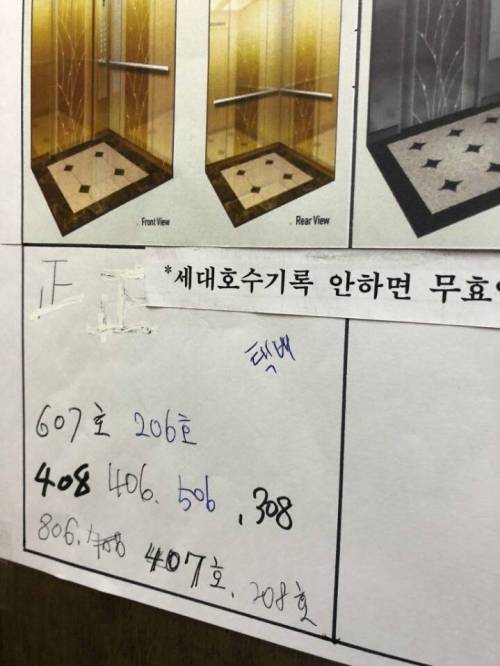 Front View
Rear View
正 正
*세대호수기록 안하면 무효
택배
607호 206호
408 406. 506 , 308
806. 407호. 208호